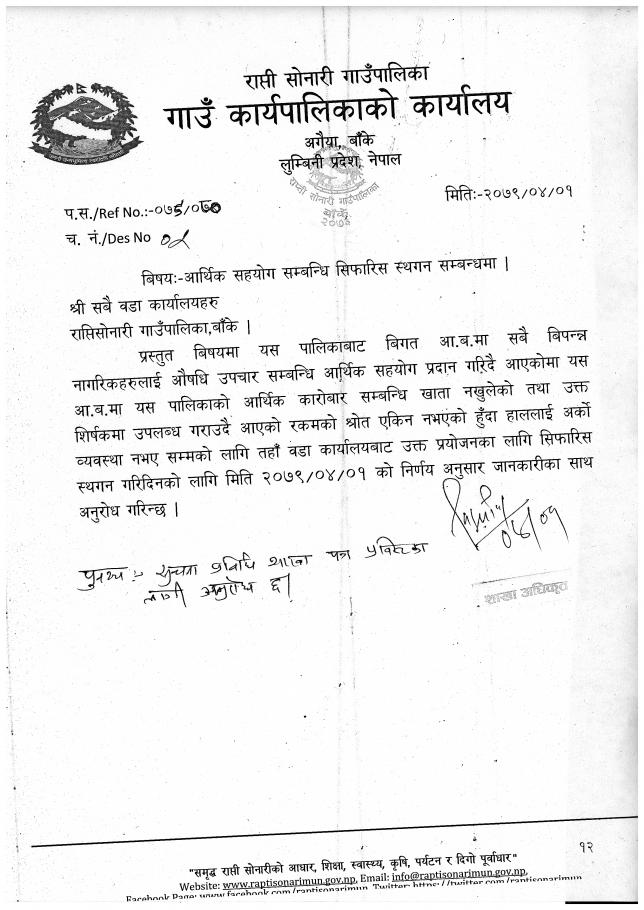 राप्ती सोनारी गाउँपालिका
गाउँ कार्यपालिकाको कार्यालय
अगैया, बाँके
लुम्बिनी प्रदेश, नेपाल
राप्ती सोनारी गाउँपालिका
बाँके
२०७३
मितिः-२०७९/०४/०१
प.स./Ref No.:-०७९/०८०
च. नं./Des No ०२
बिषयः-आर्थिक सहयोग सम्बन्धि सिफारिस स्थगन सम्बन्धमा |
श्री सबै वडा कार्यालयहरु
राप्तिसोनारी गाउँपालिका,बाँके |
प्रस्तुत बिषयमा यस पालिकाबाट बिगत आ.ब.मा सबै बिपन्न
नागरिकहरुलाई औषधि उपचार सम्बन्धि आर्थिक सहयोग प्रदान गरिदै आएकोमा यस
आ.ब.मा यस पालिकाको आर्थिक कारोबार सम्बन्धि खाता नखुलेको तथा उक्त
शिर्षकमा उपलब्ध गराउदै आएको रकमको श्रोत एकिन नभएको हुँदा हाललाई अर्को
व्यवस्था नभए सम्मको लागि तहाँ वडा कार्यालयबाट उक्त प्रयोजनका लागि सिफारिस
स्थगन गरिदिनको लागि मिति २०७९/०४/०१ को निर्णय अनुसार जानकारीका साथ
अनुरोध गरिन्छ |
०४/०१
सुचना प्रविधि शाखा पत्र
लागी अनुरोध छ।
शाखा अधिकृत
१२
"समृद्ध राप्ती सोनारीको आधार, शिक्षा, स्वास्थ्य, कृषि, पर्यटन र दिगो पूर्वाधार"
Website: www.raptisonarimun.gov.np, Email: info@raptisonarimun.gov.np,
Facebook Page: www.facebook.com/raptisonarimun, Twitter: https://twitter.com/raptisonarimun